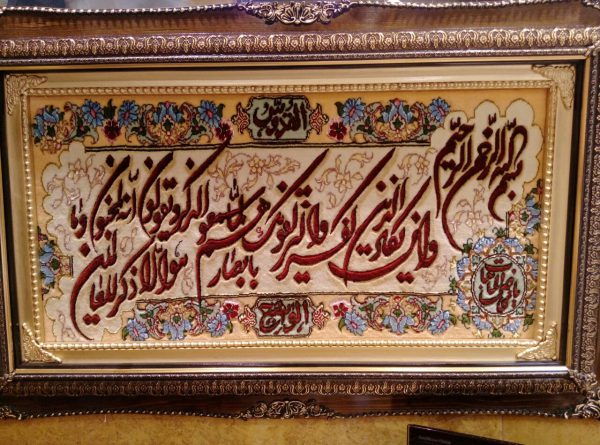 القدوس
بسم الله الرحمن الرحیم
وان یکاد الذین کفروا لیزلقونک بابصارهم لما سمعوا الذکر ویقولون انه لمجنون وما هو الا ذکر للعالمین